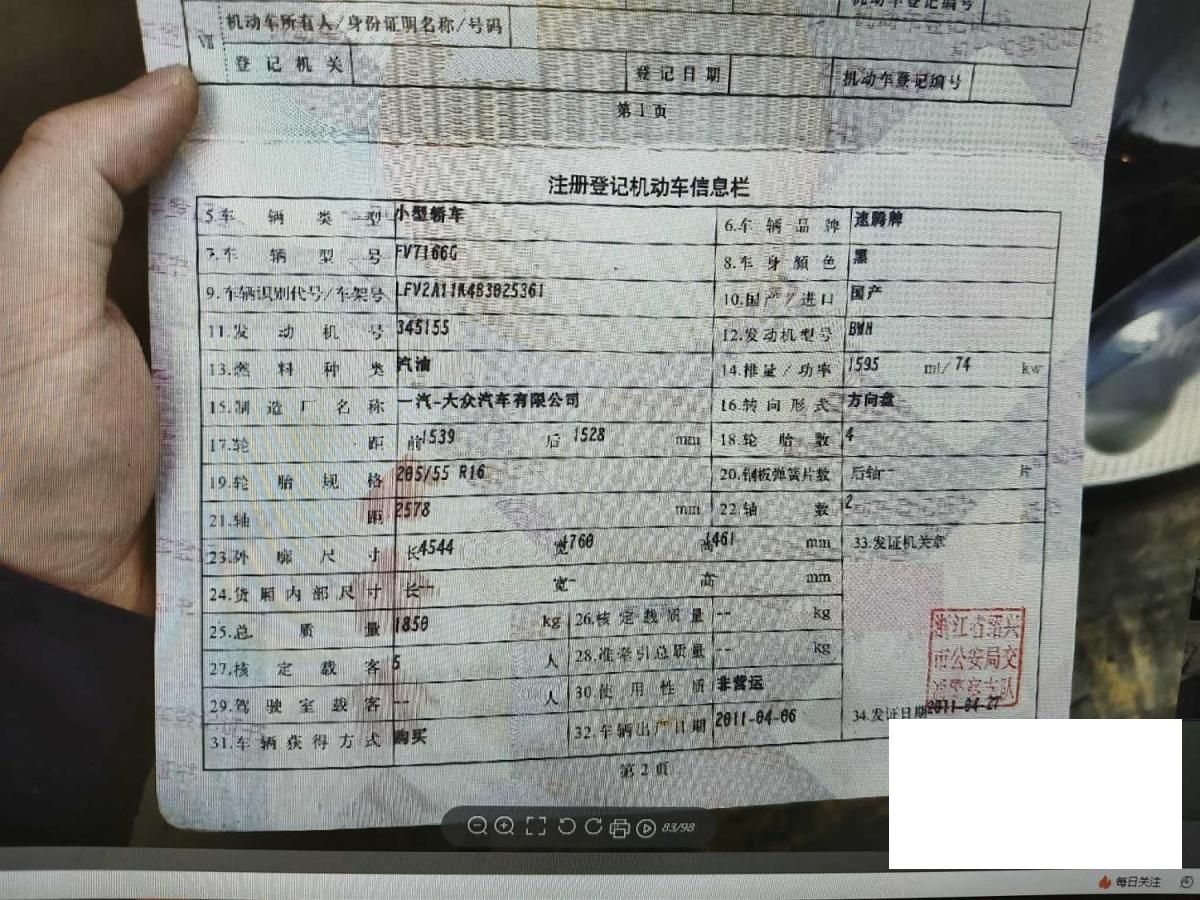 机动车登记编号
Ⅶ 机动车所有人/身份证明名称/号码
登记机关 登记日期 机动车登记编号
第1页
注册登记机动车信息栏
5.车辆类型 小型轿车 6.车辆品牌 速腾牌
7.车辆型号 FV7166G 8.车身颜色 黑
9.车辆识别代号/车架号 10.国产/进口 国产
11.发动机号 345155 12.发动机型号 BWH
13.燃料种类 汽油 14.排量/功率 1595 ml/74 kw
15.制造厂名称 一汽-大众汽车有限公司 16.转向形式 方向盘
17.轮距 前1539 后1528 mm 18.轮胎数 4
19.轮胎规格 205/55 R16 20.钢板弹簧片数 后轴-- 片
21.轴距 2578 mm 22.轴数 2
23.外廓尺寸 长4544 宽1760 高1461 mm 33.发证机关章
24.货厢内部尺寸 长-- 宽- 高 mm
25.总质量 1850 kg 26.核定载质量 -- kg
27.核定载客 5 人 28.准牵引总质量 -- kg
29.驾驶室载客 -- 人 30.使用性质 非营运
31.车辆获得方式 购买 32.车辆出厂日期 2011-04-06 34.发证日期 2011-04-27
浙江省绍兴
市公安局交
第2页
83/98
每日关注